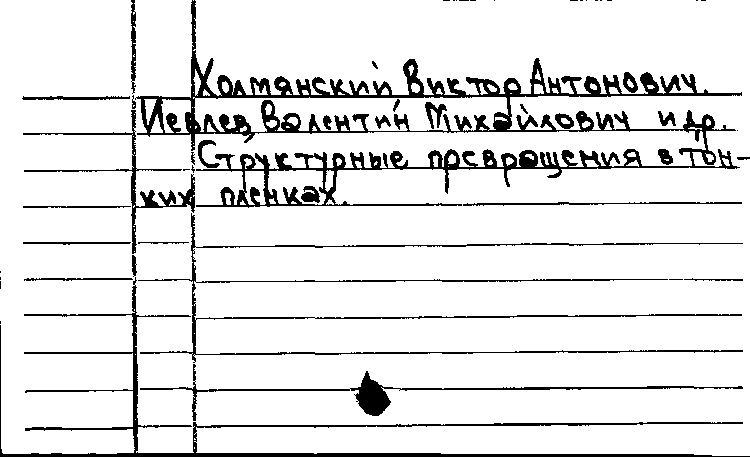 Холмянский Виктор Антонович.
Иевлев, Валентин Михайлович и др.
Структурные превращения в тон-
ких пленках.